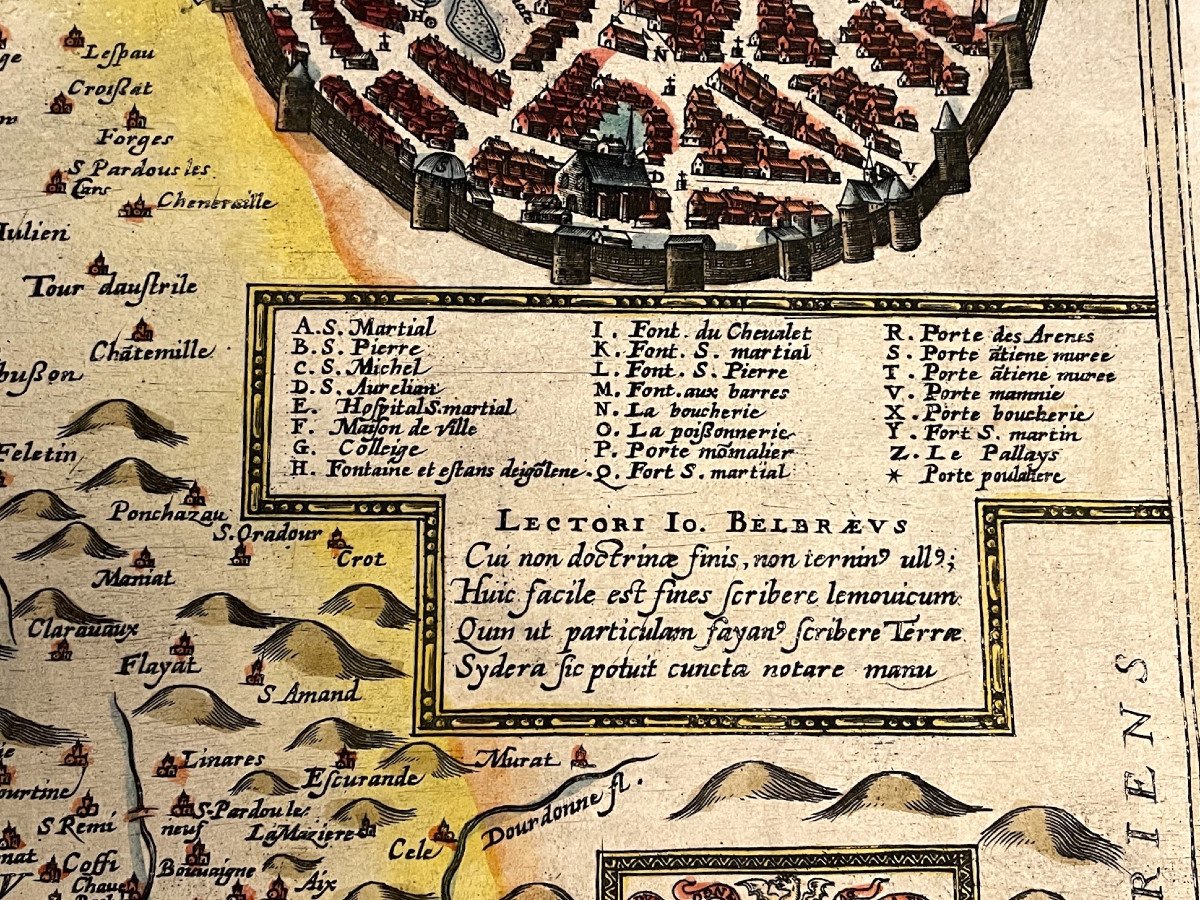 Lespau
Croißat
Forges
S Pardous les
Cans
Cheneraille
Iulien
Tour daustrile
Châtemille
bußon
Feletin
Ponchazau
S. Oradour
Crot
Maniat
Clarauaux
Flayat
S Amand
Linares
Escurande
Murat
ourtine
S Remi
S. Pardou le
neuf
La Maziere
Cele
Dourdonne fl.
nat
Coffi
Bouuaigne
Chaue
Aix
H
N
D
S
V
A. S. Martial
B. S. Pierre
C. S. Michel
D. S. Aurelian
E. Hospital S. martial
F. Maison de ville
G. Colleige
H. Fontaine et estans deigōlene
I. Font. du Cheualet
K. Font. S. martial
L. Font. S. Pierre
M. Font. aux barres
N. La boucherie
O. La poißonnerie
P. Porte mōmalier
Q. Fort S. martial
R. Porte des Arenes
S. Porte ātiene muree
T. Porte ātiene muree
V. Porte mamnie
X. Porte boucherie
Y. Fort S. martin
Z. Le Pallays
* Porte poulaliere
LECTORI IO. BELBRÆVS
Cui non doctrinæ finis, non terminꝰ ullꝰ;
Huic facile est fines scribere lemouicum
Quin ut particulam fayanꝰ scribere Terræ
Sydera sic potuit cuncta notare manu
RIENS